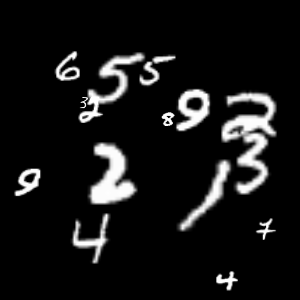 6 5 5
3 2 8 9 2
9 2 1 3
4 7
4